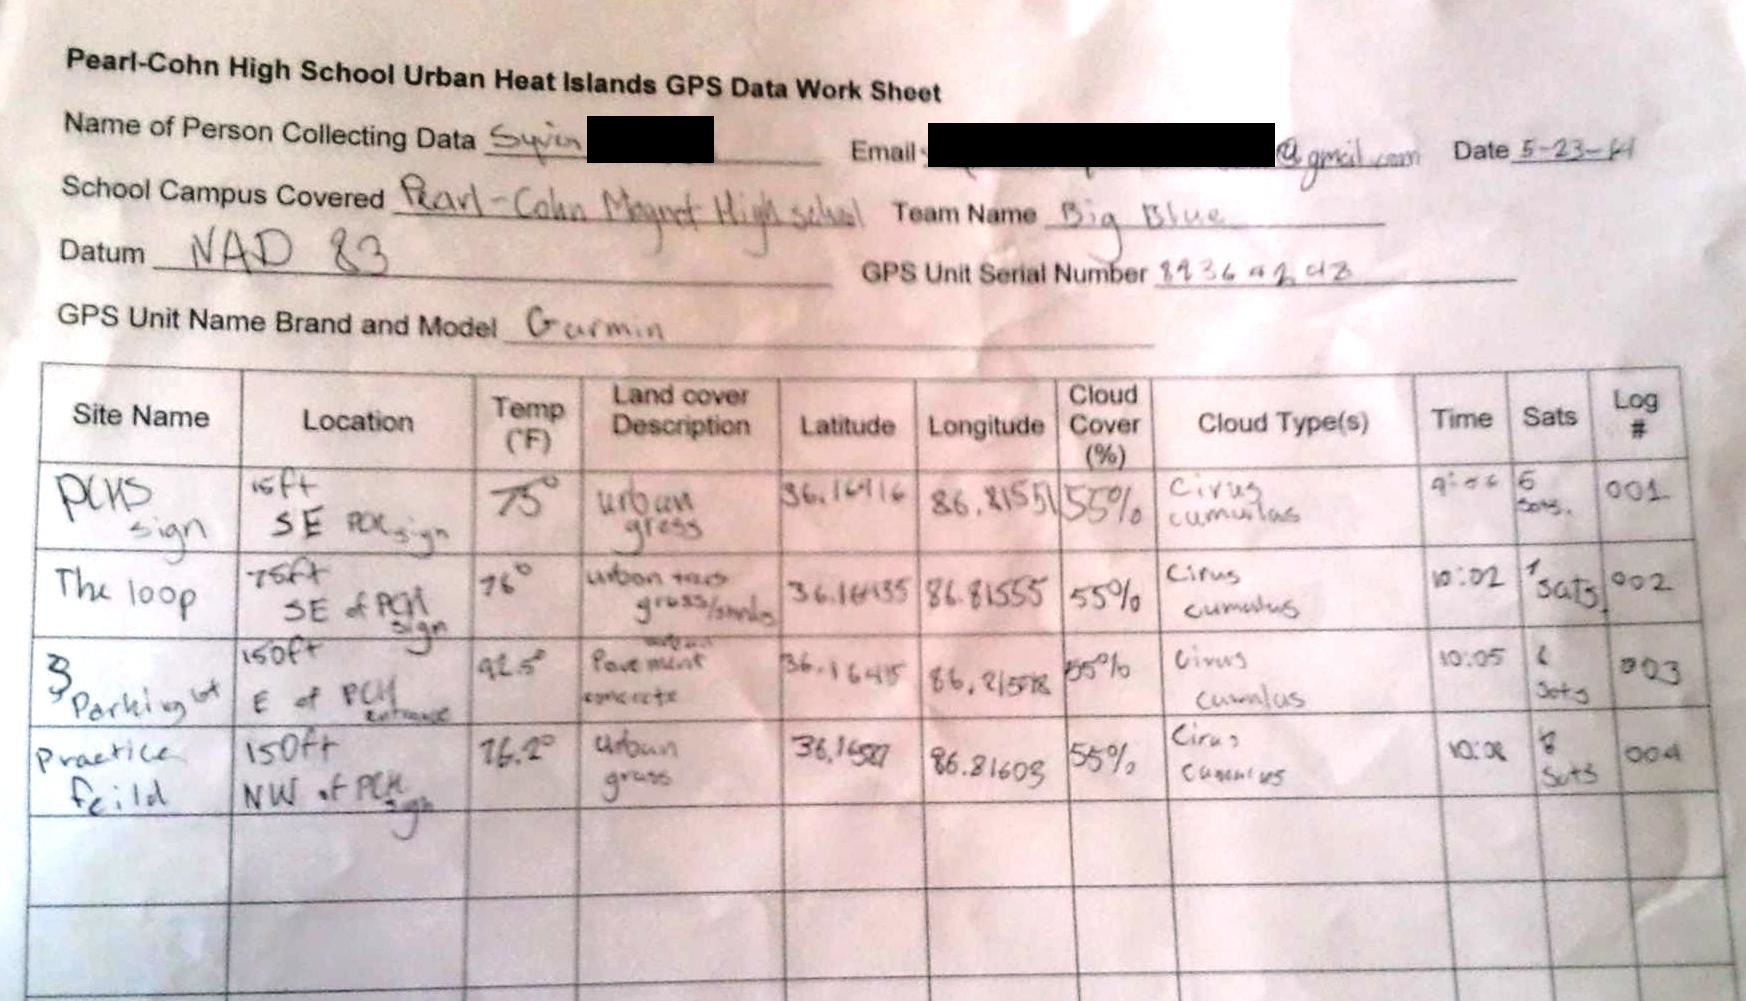 Pearl-Cohn High School Urban Heat Islands GPS Data Work Sheet
Name of Person Collecting Data Email @gmail.com Date 5-23-14
School Campus Covered Pearl-Cohn Magnet High school Team Name Big Blue
Datum NAD 83 GPS Unit Serial Number
GPS Unit Name Brand and Model Garmin
Site Name Location Temp (°F) Land cover Description Latitude Longitude Cloud Cover (%) Cloud Type(s) Time Sats Log #
PCHS sign 15ft SE sign 75° urban grass 36.16416 86.81551 55% Cirus cumulas 6 sats. 001
The loop 75ft SE of PCH sign 76° urban 86.81555 55% Cirus cumulus 10:02 sats 002
3 Parking lot 150ft E of PCH entrance 92.5° Pavement concrete 55% Cirus cumulas 10:05 Sats 003
Practice feild 150ft NW of PCH sign 76.2° urban grass 86.81603 55% Cirus 8 Sats 004